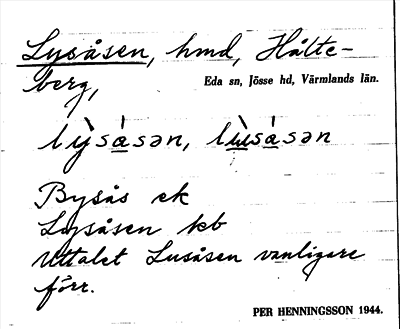 Lysåsen, hmd, Hålte-
berg,
Eda sn, Jösse hd, Värmlands län.
lỳsàsən, lùsàsən
Bysås ek
Lysåsen kb
Uttalet Lusåsen vanligare
förr.
PER HENNINGSSON 1944.